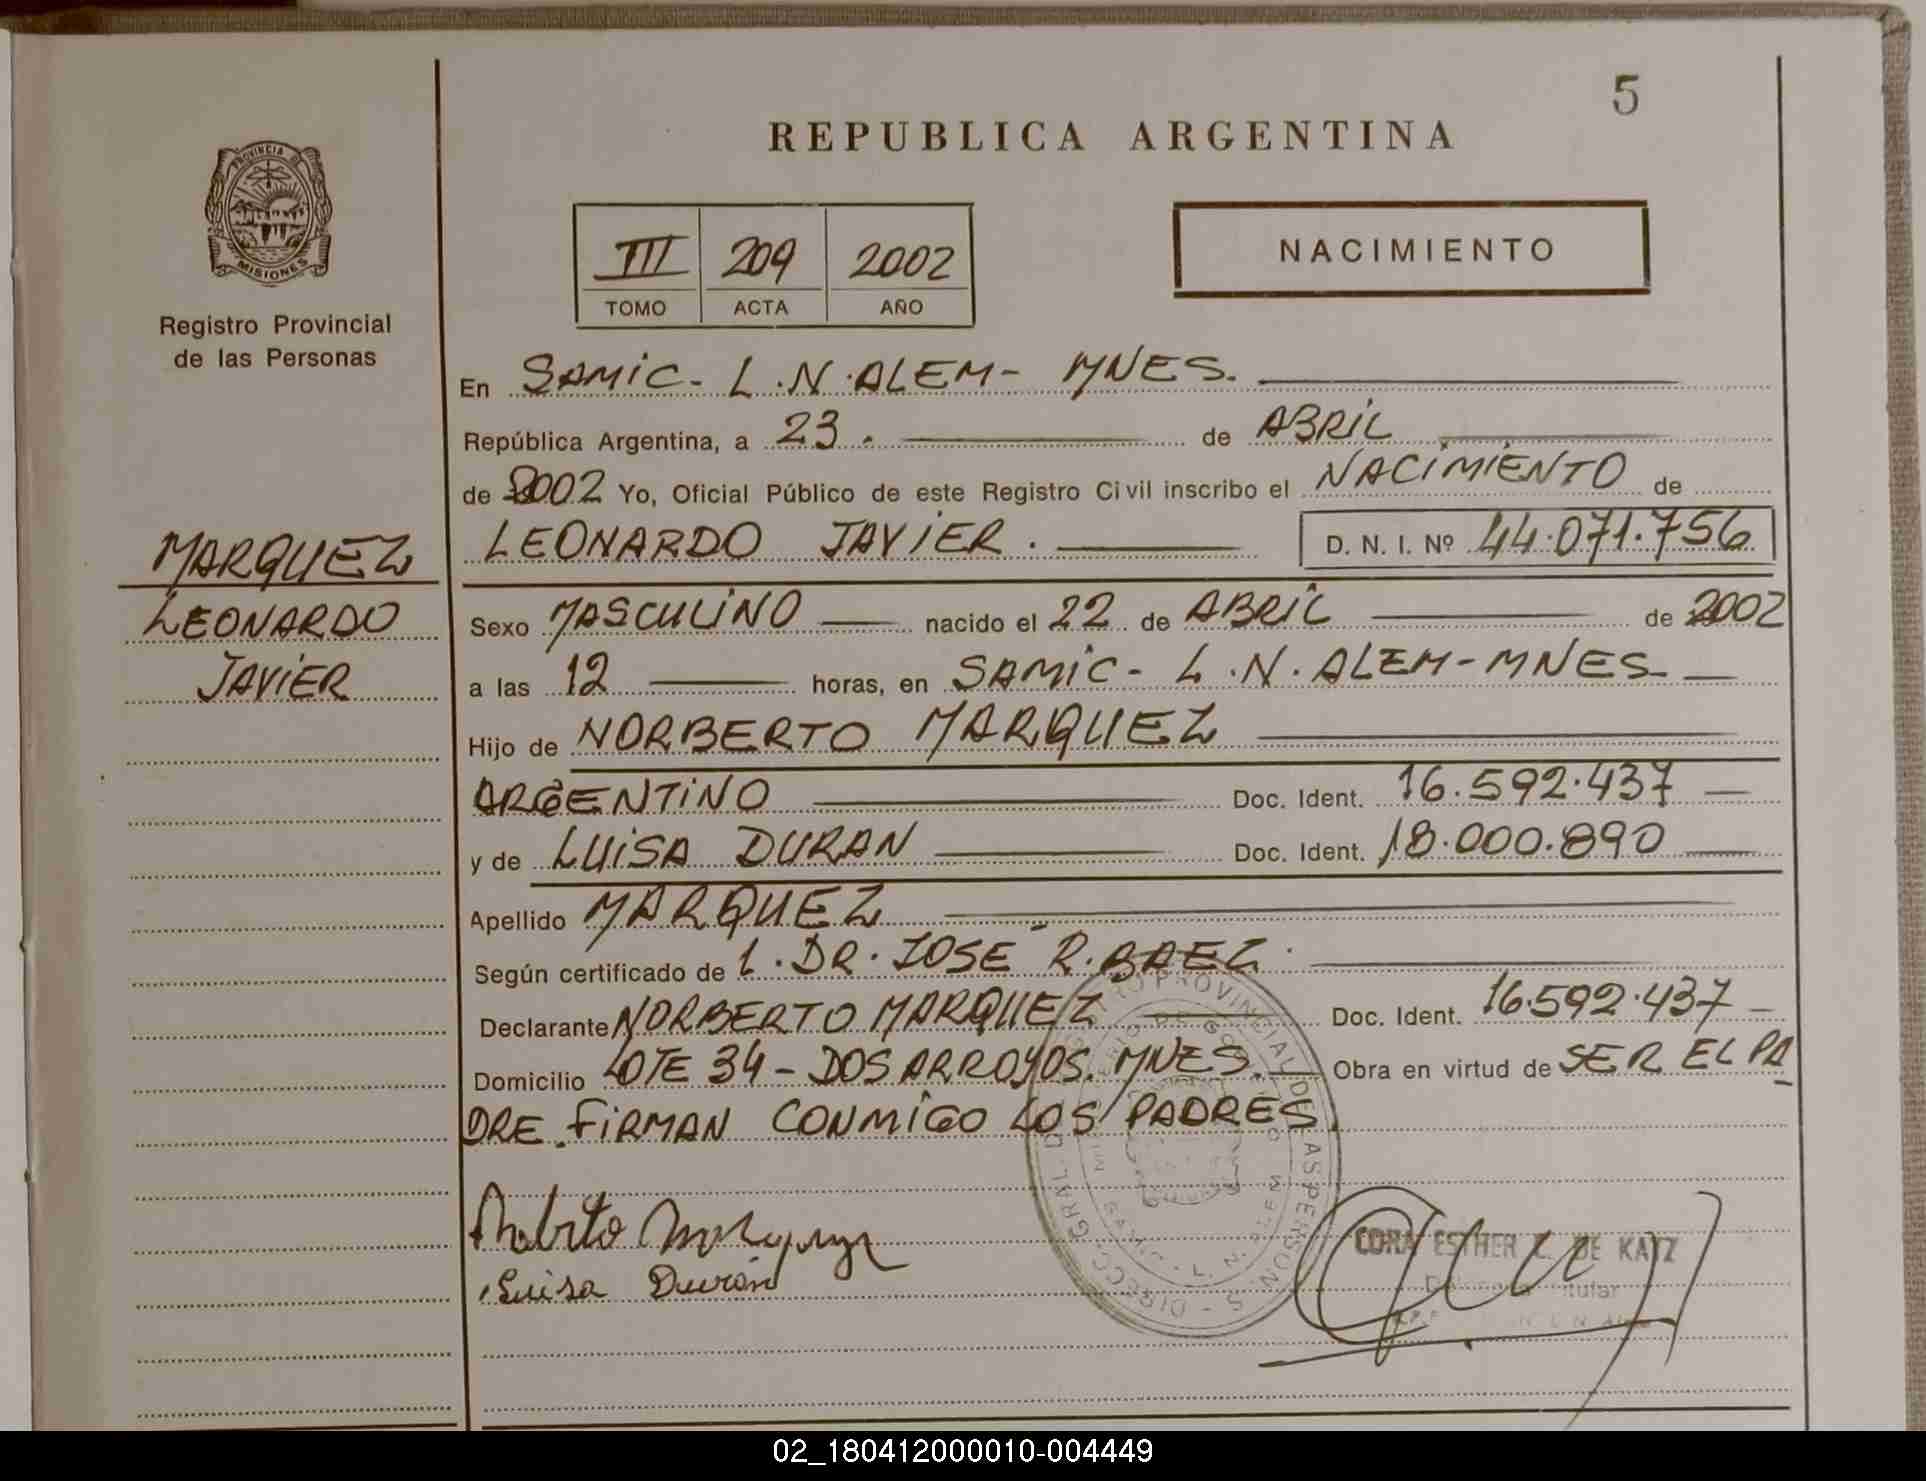 5
REPUBLICA ARGENTINA
PROVINCIA DE
MISIONES
Registro Provincial
de las Personas
III 209 2002
TOMO ACTA AÑO
NACIMIENTO
En SAMIC - L.N. ALEM - MNES.
República Argentina, a 23. de ABRIL
de 2002 Yo, Oficial Público de este Registro Civil inscribo el NACIMIENTO de
LEONARDO JAVIER. D. N. I. Nº 44.071.756
MARQUEZ
LEONARDO
JAVIER
Sexo MASCULINO nacido el 22 de ABRIL de 2002
a las 12 horas, en SAMIC - L.N. ALEM - MNES
Hijo de NORBERTO MARQUEZ
ARGENTINO Doc. Ident. 16.592.437
y de LUISA DURAN Doc. Ident. 18.000.890
Apellido MARQUEZ
Según certificado de L. DR. JOSE R. BAEZ
Declarante NORBERTO MARQUEZ Doc. Ident. 16.592.437
Domicilio LOTE 34 - DOS ARROYOS. MNES. Obra en virtud de SER EL PA
DRE. FIRMAN CONMIGO LOS PADRES.
Luisa Durán
CORA ESTHER DE KATZ
02_180412000010-004449